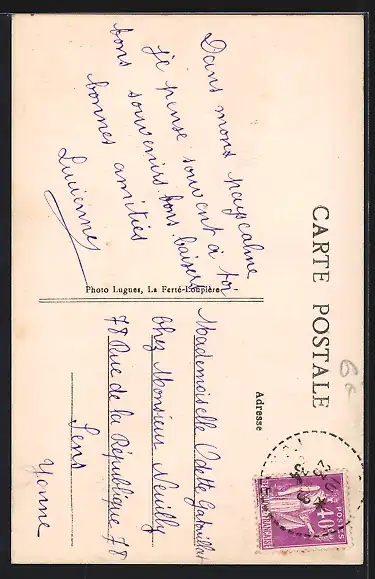 CARTE POSTALE
Dans mons pays calme
je pense souvent à toi
bons souvenirs. bons baisers
bonnes amitiés
Lucienne
Photo Lugues, La Ferté-Loupière
Adresse
Mademoiselle Odette
Chez Monsieur Neuilly
78 Rue de la République 78
Sens
Yonne
POSTES
40c
6e